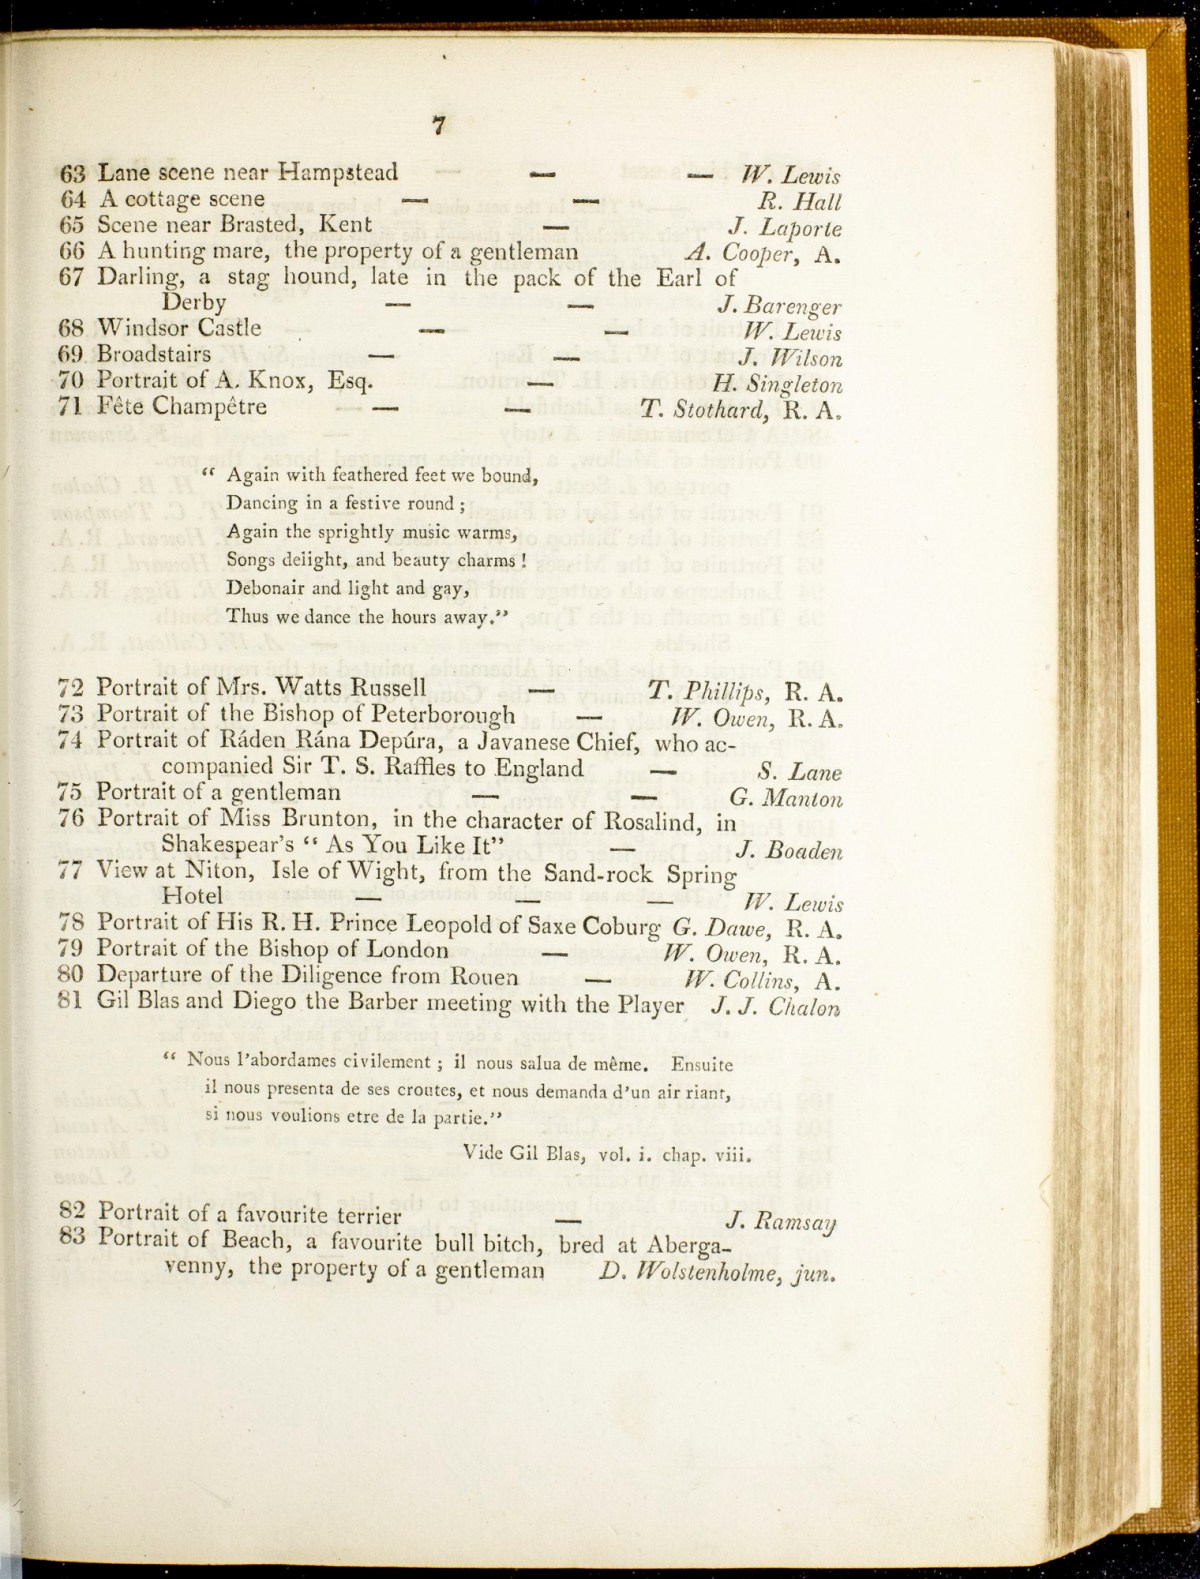 7
63 Lane scene near Hampstead — — W. Lewis
64 A cottage scene — — R. Hall
65 Scene near Brasted, Kent — J. Laporte
66 A hunting mare, the property of a gentleman A. Cooper, A.
67 Darling, a stag hound, late in the pack of the Earl of
Derby — — J. Barenger
68 Windsor Castle — — W. Lewis
69 Broadstairs — — J. Wilson
70 Portrait of A. Knox, Esq. — H. Singleton
71 Fête Champêtre — — T. Stothard, R. A.
“ Again with feathered feet we bound,
Dancing in a festive round ;
Again the sprightly music warms,
Songs delight, and beauty charms !
Debonair and light and gay,
Thus we dance the hours away.”
72 Portrait of Mrs. Watts Russell — T. Phillips, R. A.
73 Portrait of the Bishop of Peterborough — W. Owen, R. A.
74 Portrait of Ráden Rána Depúra, a Javanese Chief, who ac-
companied Sir T. S. Raffles to England — S. Lane
75 Portrait of a gentleman — — G. Manton
76 Portrait of Miss Brunton, in the character of Rosalind, in
Shakespear's “ As You Like It” — J. Boaden
77 View at Niton, Isle of Wight, from the Sand-rock Spring
Hotel — — — W. Lewis
78 Portrait of His R. H. Prince Leopold of Saxe Coburg G. Dawe, R. A.
79 Portrait of the Bishop of London — W. Owen, R. A.
80 Departure of the Diligence from Rouen — W. Collins, A.
81 Gil Blas and Diego the Barber meeting with the Player J. J. Chalon
“ Nous l'abordames civilement ; il nous salua de même. Ensuite
il nous presenta de ses croutes, et nous demanda d'un air riant,
si nous voulions etre de la partie.”
Vide Gil Blas, vol. i. chap. viii.
82 Portrait of a favourite terrier — J. Ramsay
83 Portrait of Beach, a favourite bull bitch, bred at Aberga-
venny, the property of a gentleman D. Wolstenholme, jun.